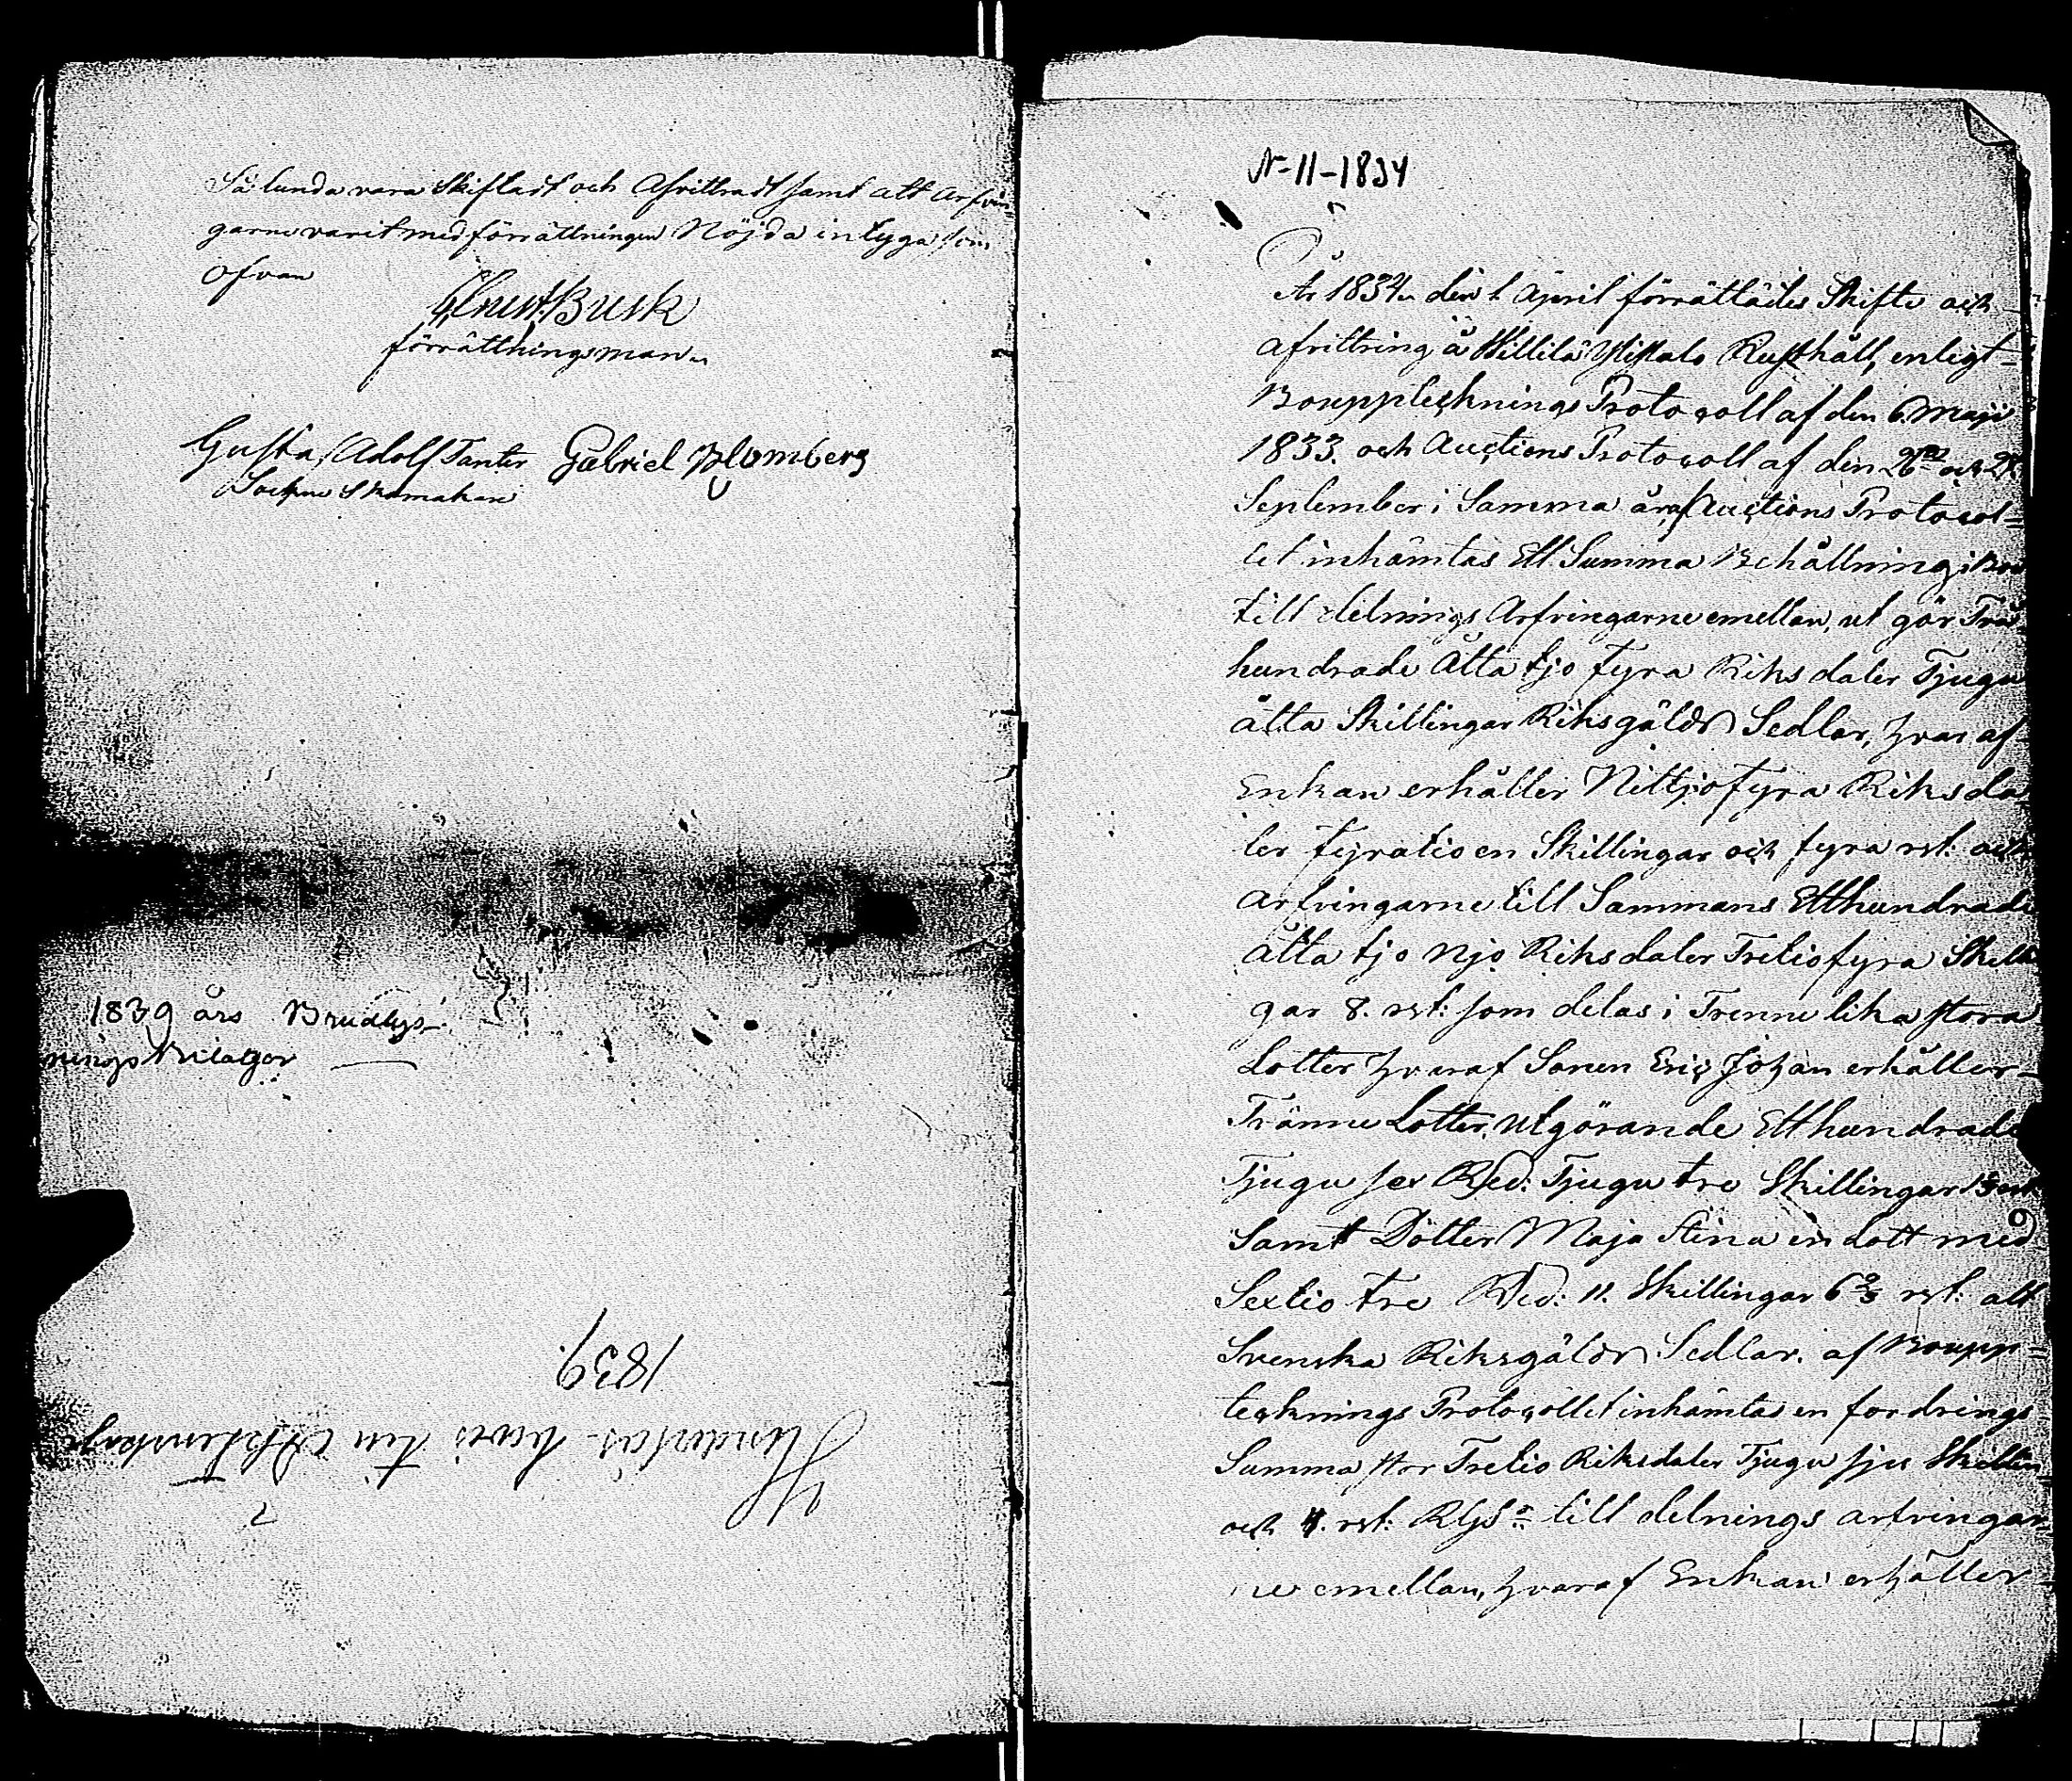 Så lunda vara Skiftadt och Afvittradt samt att Arfvin=
garne varit med förrättningen Nöjda intyga som
ofvan
Busk
förrättningsman
Gustaf Adolf Tanter Gabriel Blomberg
Sockne Skomakare
1839 års Brudlys=
nings Bilagor
1839.
N-11-1834
År 1834 den 1 April förrättades Skifte och
afvittring å Rusthåll, enligt
Boupptecknings Protocoll af den 6 Maji
1833. och Auctions Protocoll af den 26 och 27
September i Samma år, af Auctions Protocol=
let inhämtas Ett Summa Behållning i Boet
till delnings Arfvingarne emellan, ut gör Två
hundrade Åtta tjo fyra Riksdaler Tjugu
åtta Skillingar Riksgälds Sedlar, hvar af
Enkan erhåller Nittjofyra Riksda
ler fyratio en Skillingar och fyra rst: och
arfvingarne till Sammans Etthundrade
åtta tjo njo Riksdaler Tretiofyra Skillin
gar 8. rst: som delas i Trenne lika stora
Lotter hvaraf Sonen Eric Johan erhåller
Tvänne Lotter, utgörande Etthundrade
Tjugu sex Rd: Tjugu tre Skillingar
Samt Dotter Maja Stina en Lott med
Sextio tre Rd: 11. Skillingar 6 2/3 rst: alt
Svenska Riksgälds Sedlar. af Boupp=
tecknings Protocollet inhämtas en fordrings
Summa stor Tretio Riksdaler Tjugu sju Skillin
och 4. rst: RgS till delnings arfvingar
ne emellan, hvaraf Enkan erhåller